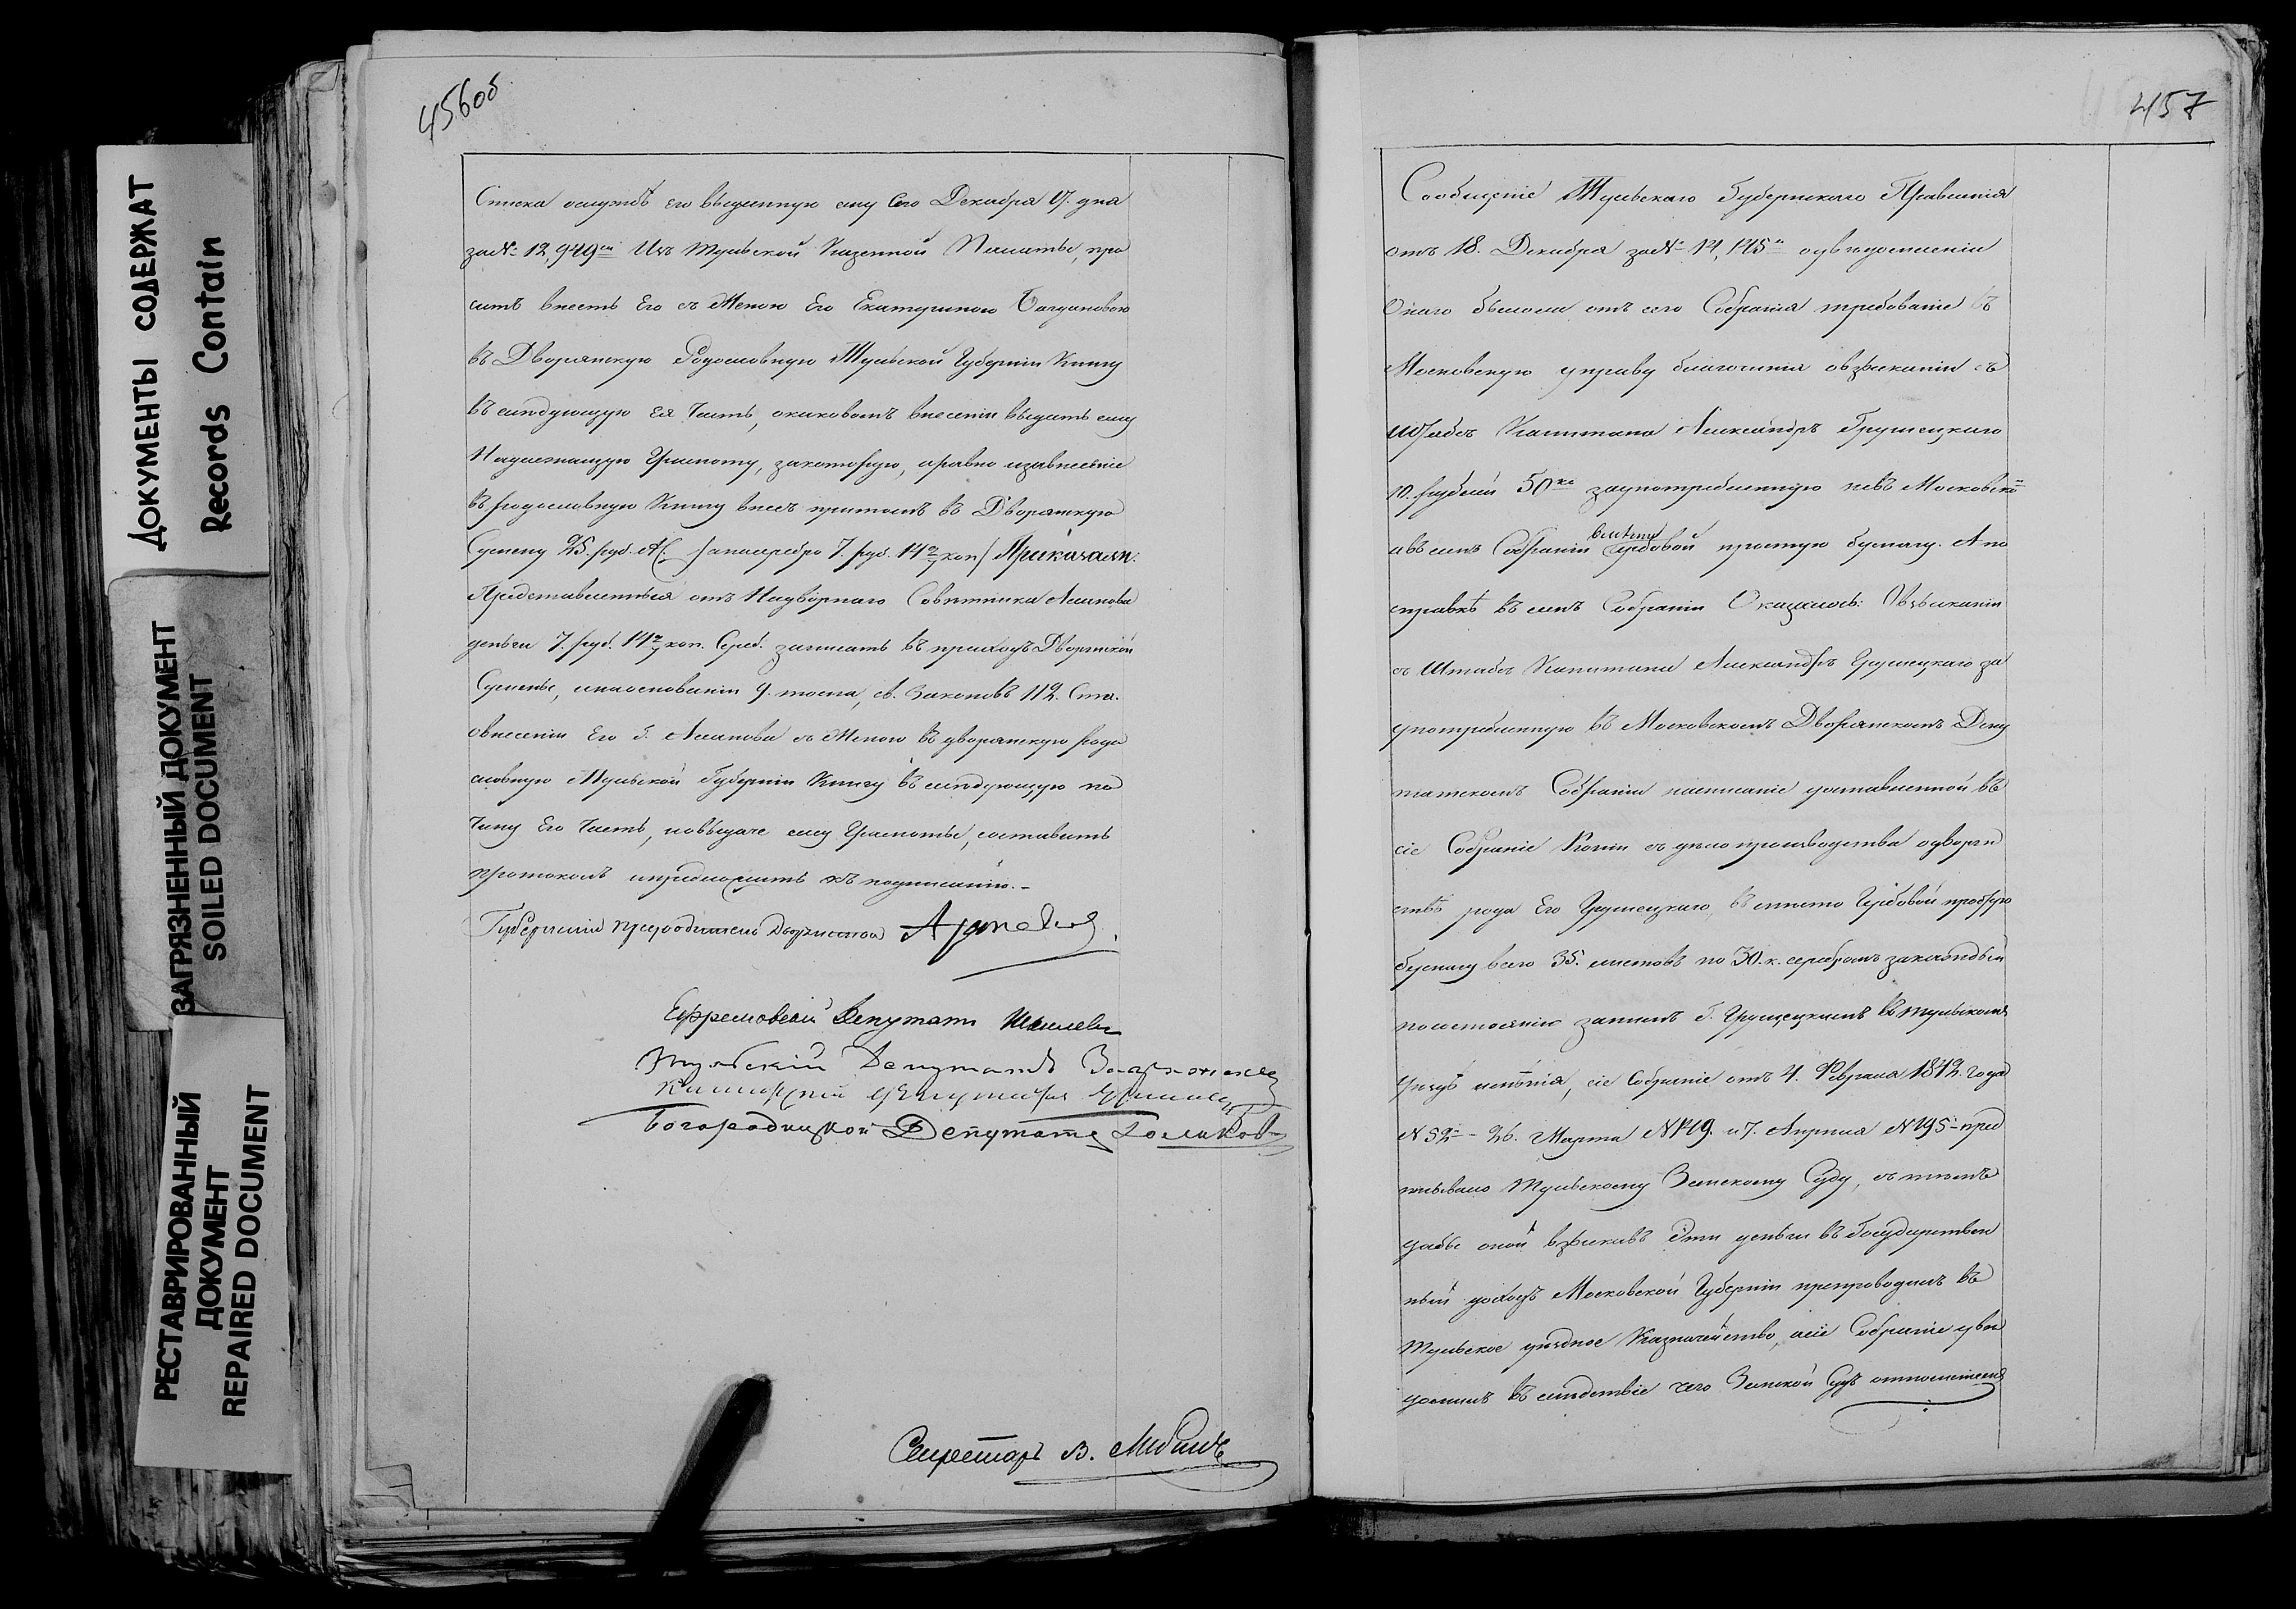 456об
Списка ослужбѣ его выданную ему Сего Декабря 17. дня
за № 12,949 Изъ Тульской Казенной Палаты, про
ситъ внесть Его съ Женою Его Екатериною Богдановою
въ Дворянскую Родословную Тульской Губерніи Книгу
въ слѣдующую ея Часть, окаковомъ внесеніи выдать ему
Надлежащую Грамоту, закоторую, аравно изавнесеніе
въ родословную Книгу внесъ притомъ въ Дворянскую
Сумму 25. руб. Ас. / анасеребро 7. руб. 14 2/7 коп / Приказали:
Представленныя отъ Надворнаго Совѣтника Асанова
деньги 7. руб. 14 2/7 коп. Сереб. записать въ приходъ Дворянской
Суммы, инаоснованіи 9. тома, св. Законовъ 112. Ста.
овнесеніи Его г. Асанова съ Женою въ дворянскую родо
словную Тульской Губерніи Книгу въ слѣдующую по
Чину Его Часть, иовыдаче ему Грамоты, составить
протоколъ ипредложить къ подписанію. –
Губернскій предводитель дворянства
Ефремовскій Депутатъ
Тульскій Депутатъ
Каширскій Депутатъ
Богородицкой Депутатъ Голиковъ
Секретарь В.
457
Сообщеніе Тульскаго Губернскаго Правленія
отъ 18. Декабря за № 14,145 оувѣдомленіи
Онаго былоли отъ сего Собранія требованіе въ
Московскую управу благочинія овзысканіи съ
Штабсъ Капитана Александра Грушецкаго
10. рублей 50 ке заупотребленную какъ Московской
авъ семъ Собраніи вмѣсто гербовой простую бумагу. А по
справкѣ въ семъ Собраніи Оказалось: Овзысканіи
съ Штабсъ Капитана Александра Грушецкаго за
употребленную въ Московскомъ Дворянскомъ Депу
татскомъ Собраніи написаніе доставленной въ
сіе Собраніе Копіи съ дѣлопроизводства одворян
ствѣ рода Его Грушецкаго, вмѣсто Гербовой простую
бумагу всего 35. листовъ по 30. к. серебромъ закаждый
посостоянію занимъ г. Грушецкимъ въ Тульскомъ
Уездѣ имѣнія, сіе Собраніе отъ 4. Февраля 1842. года
№ 52 – 26. Марта № 149. и 7. Апреля № 195 – пред
писывало Тульскому Земскому Суду, съ тѣмъ
дабы оной взыскавъ Эти деньги въ Государствен
ный доходъ Московской Губерніи препроводилъ въ
Тульское уездное Казначейство, асіе Собраніе увѣ
домилъ въ слѣдствіе чего Земской Судъ отношеніемъ
ДОКУМЕНТЫ СОДЕРЖАТ
Records Contain
ЗАГРЯЗНЕННЫЙ ДОКУМЕНТ
SOILED DOCUMENT
РЕСТАВРИРОВАННЫЙ
ДОКУМЕНТ
REPAIRED DOCUMENT